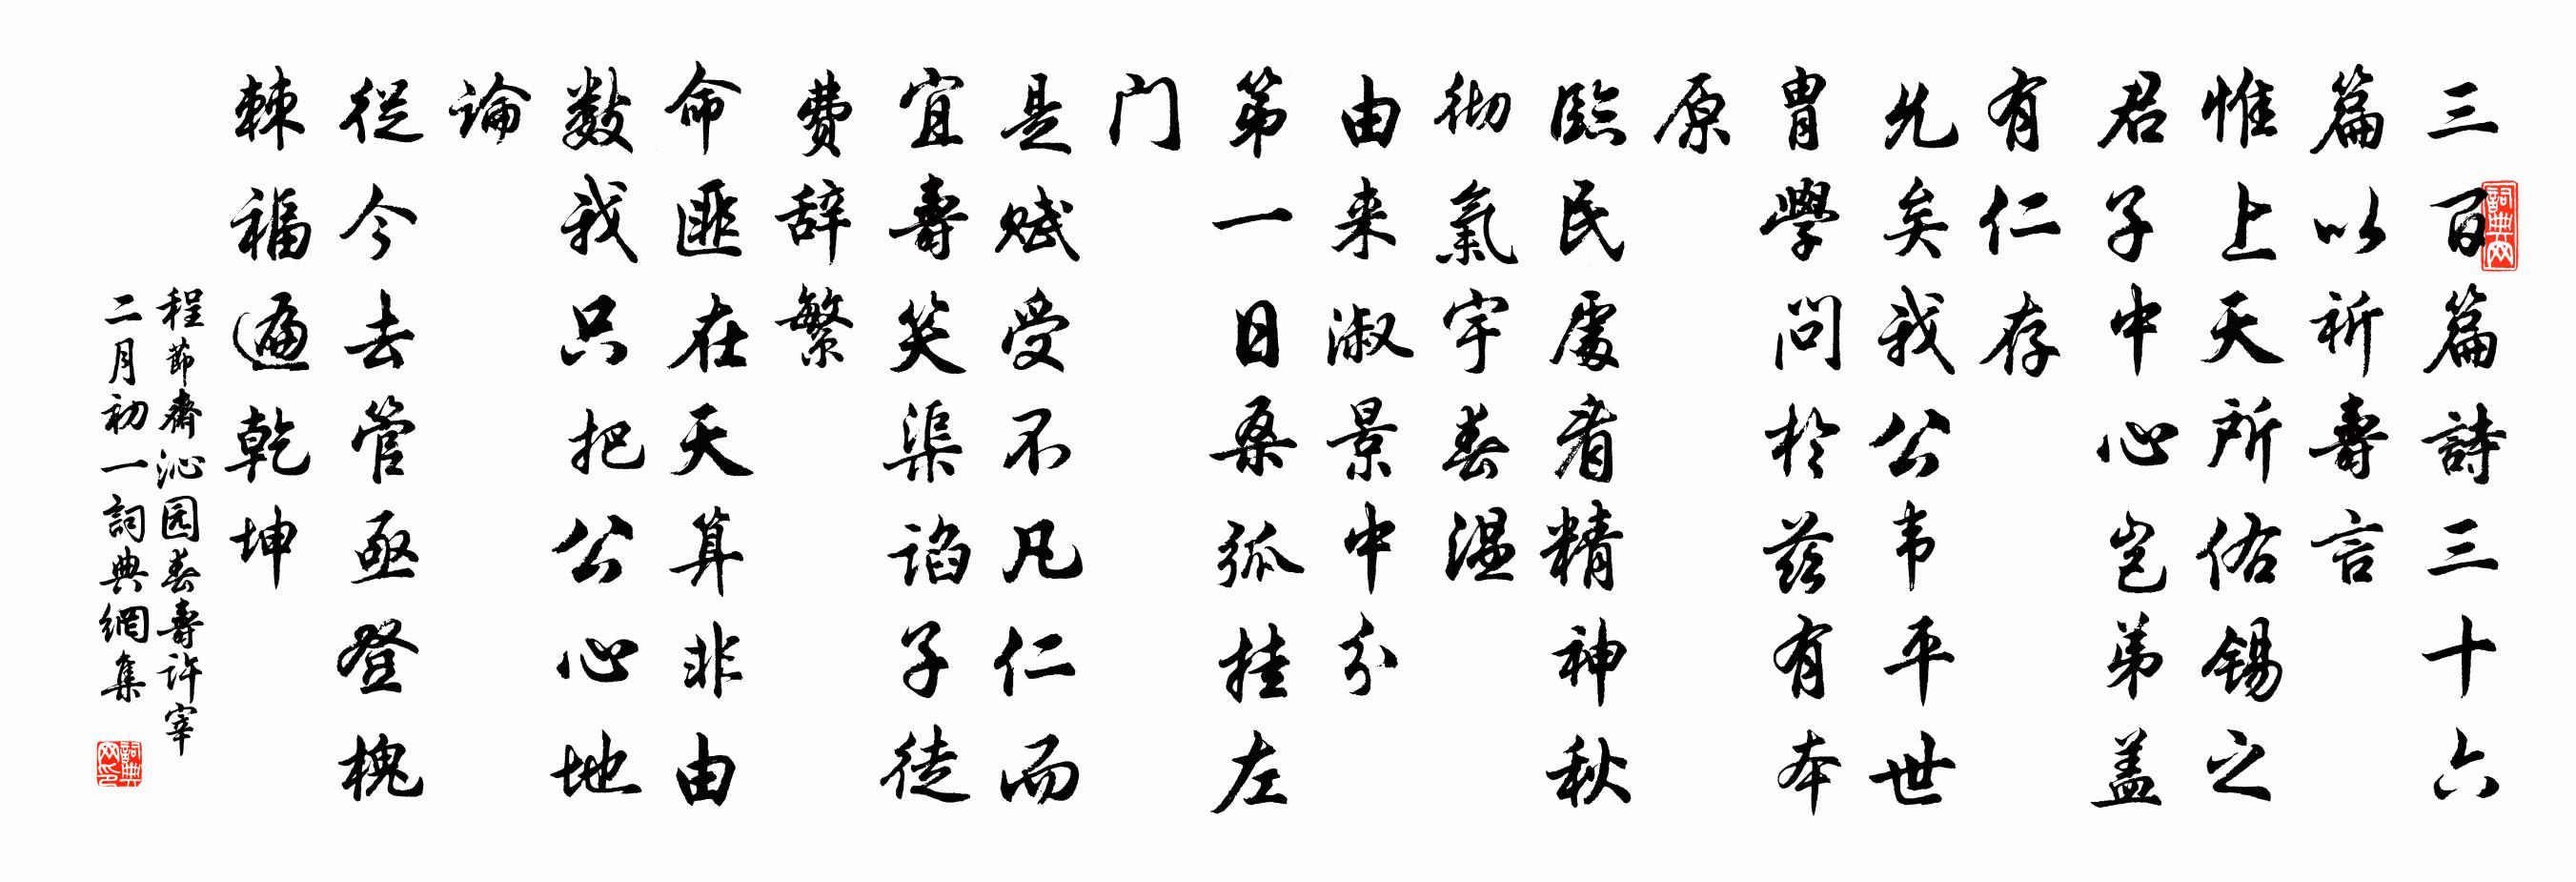 三百篇詩三十六
篇以祈壽言
惟上天所佑錫之
君子中心岂弟盖
有仁存
允矣我公韦平世
胄學問於兹有本
原
臨民處看精神秋
彻氣宇春温
由来淑景中分
第一日桑弧挂左
门
是赋受不凡仁而
宜壽笑渠谄子徒
费辞繁
命匪在天算非由
数我只把公心地
論
從今去管亟登槐
棘福遍乾坤
程節齋沁园春壽許宰
二月初一詞典網集
詞典网
詞典网印